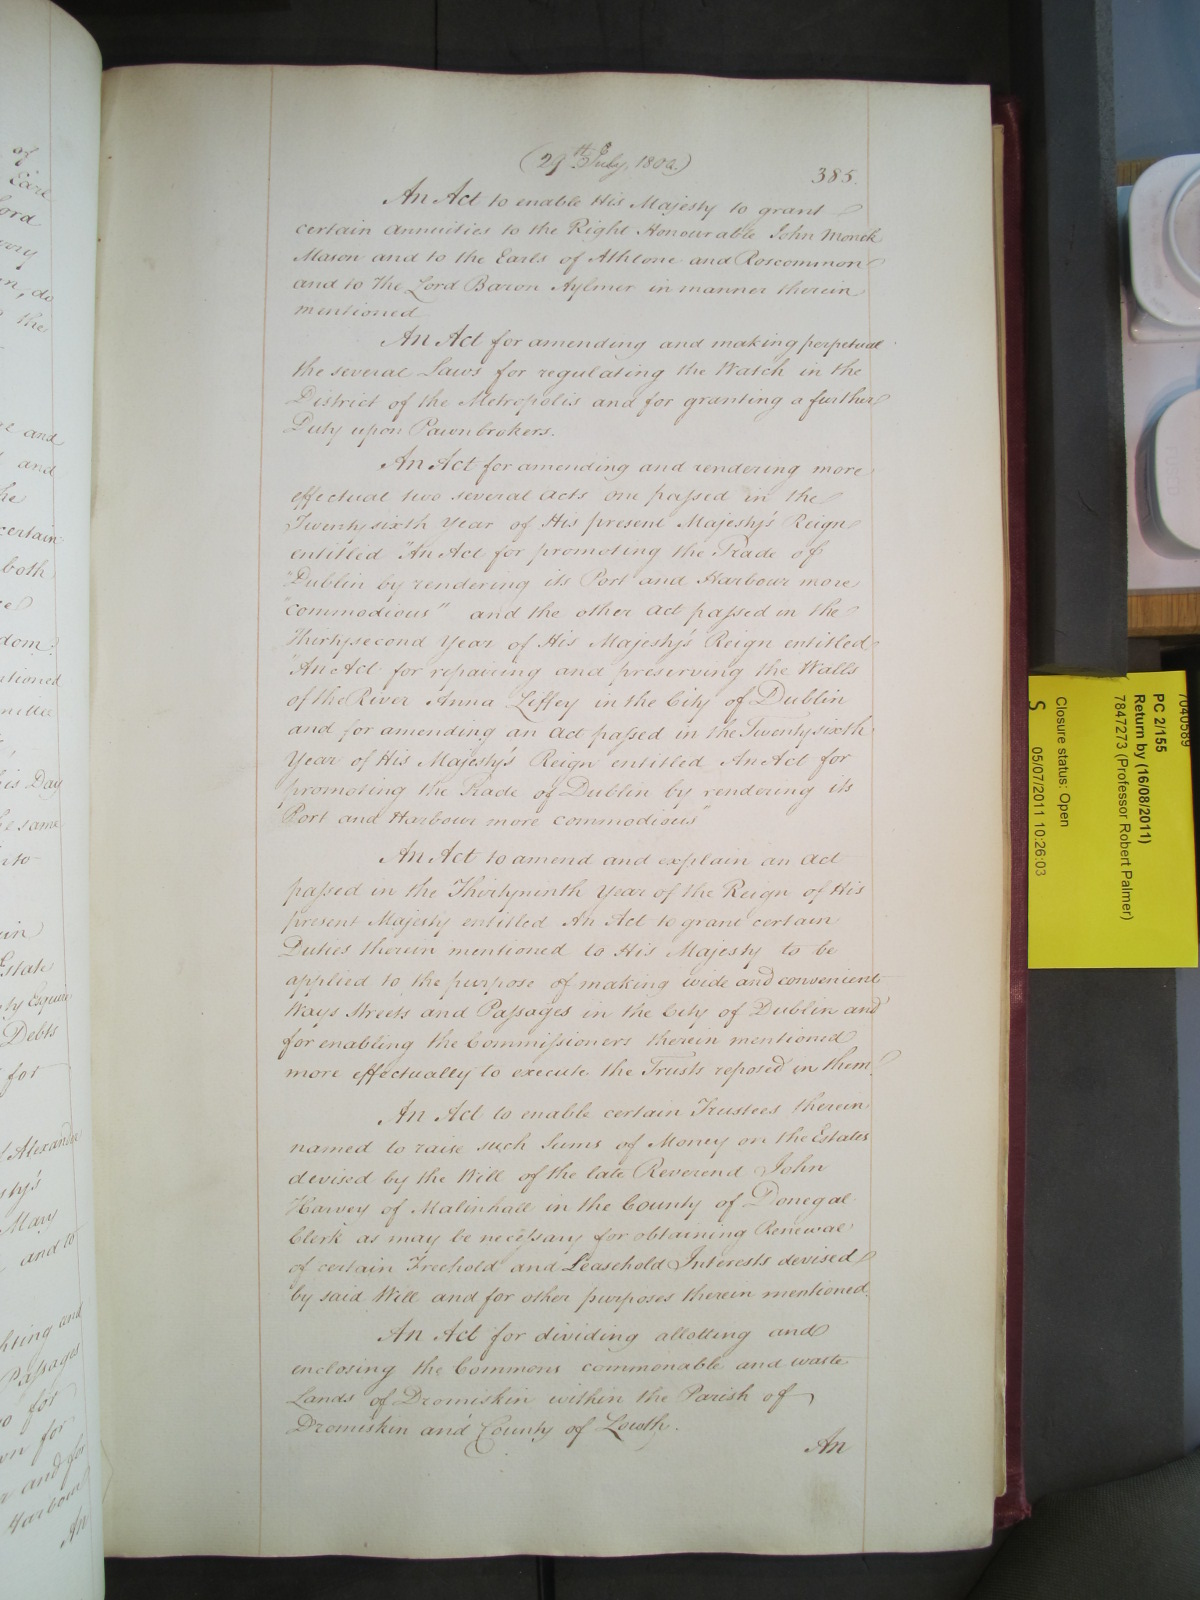 (29th July, 1800.)
385.
An Act to enable His Majesty to grant
certain annuities to the Right Honourable John Monck
Mason and to the Earls of Athlone and Roscommon
and to the Lord Baron Aylmer in manner therein
mentioned
An Act for amending and making perpetual
the several Laws for regulating the Watch in the
District of the Metropolis and for granting a further
Duty upon Pawnbrokers.
An Act for amending and rendering more
effectual two several Acts one passed in the
Twenty sixth Year of His present Majesty's Reign
entitled "An Act for promoting the Trade of
"Dublin by rendering its Port and Harbour more
"commodious" and the other Act passed in the
Thirty second Year of His Majesty's Reign entitled
"An Act for repairing and preserving the Walls
of the River Anna Liffey in the City of Dublin
and for amending an Act passed in the Twenty sixth
Year of His Majesty's Reign entitled An Act for
promoting the Trade of Dublin by rendering its
Port and Harbour more commodious"
An Act to amend and explain an Act
passed in the Thirtyninth Year of the Reign of His
present Majesty entitled An Act to grant certain
Duties therein mentioned to His Majesty to be
applied to the purpose of making wide and convenient
Ways Streets and Passages in the City of Dublin and
for enabling the Commissioners therein mentioned
more effectually to execute the Trusts reposed in them.
An Act to enable certain Trustees therein
named to raise such Sums of Money on the Estates
devised by the Will of the late Reverend John
Harvey of Malinhall in the County of Donegal
Clerk as may be necessary for obtaining Renewal
of certain Freehold and Leasehold Interests devised
by said Will and for other purposes therein mentioned.
An Act for dividing allotting and
enclosing the Commons commonable and waste
Lands of Dromiskin within the Parish of
Dromiskin and County of Louth.
An
of
Earl
Lord
the
and
and
the
certain
both
Day
same
into
Estate
Esquire
Debts
for
Alexander
Mary
and to
and
Passages
for
for
and for
Harbour
An
7040589
PC 2/155
Return by (16/08/2011)
7847273 (Professor Robert Palmer)
Closure status: Open
S 05/07/2011 10:26:03